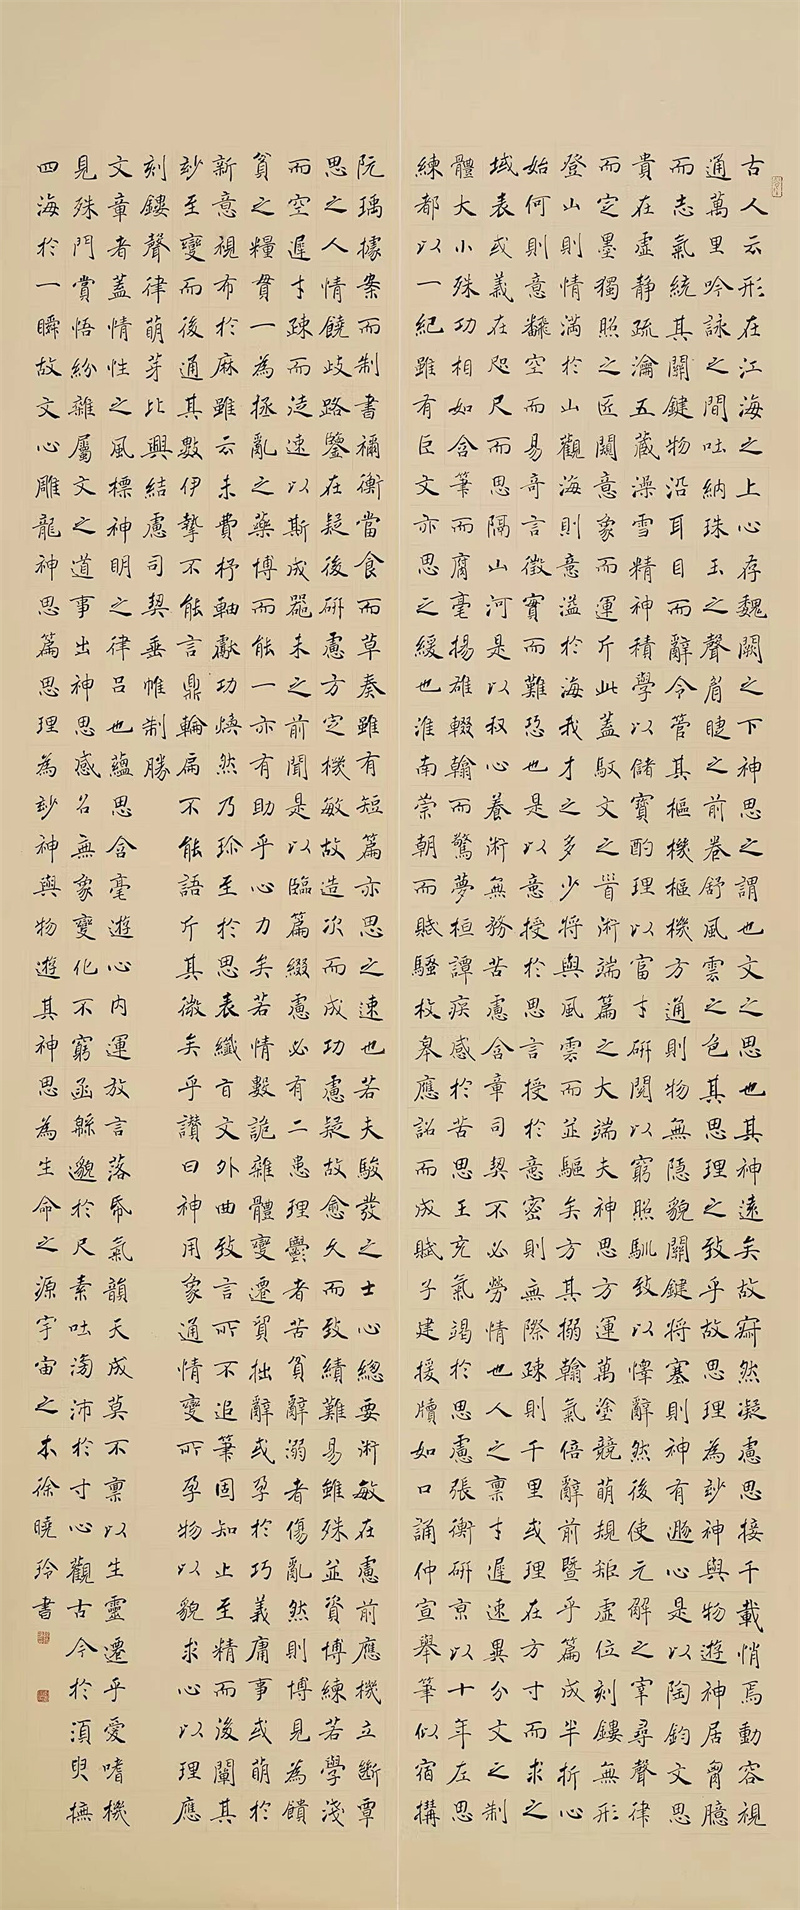 古人云形在江海之上心存魏闕之下神思之謂也文之思也其神遠矣故寂然凝慮思接千載悄焉動容視
通萬里吟詠之間吐納珠玉之聲眉睫之前卷舒風雲之色其思理之致乎故思理為妙神與物遊神居胷臆
而志氣統其關鍵物沿耳目而辭令管其樞機樞機方通則物無隱貌關鍵將塞則神有遯心是以陶鈞文思
貴在虛靜疏瀹五藏澡雪精神積學以儲寶酌理以富才研閱以窮照馴致以懌辭然後使元解之宰尋聲律
而定墨獨照之匠闚意象而運斤此蓋馭文之首術端篇之大端夫神思方運萬塗競萌規矩虛位刻鏤無形
登山則情滿於山觀海則意溢於海我才之多少將與風雲而並驅矣方其搦翰氣倍辭前暨乎篇成半折心
始何則意翻空而易奇言徵實而難恐也是以意授於思言授於意密則無際疎則千里或理在方寸而求之
域表或義在咫尺而思隔山河是以权心養術無務苦慮含章司契不必勞情也人之稟才遲速異分文之制
體大小殊功相如含筆而腐毫揚雄輟翰而驚夢桓譚疾感於苦思王充氣竭於思慮張衡研京以十年左思
練都以一紀雖有巨文亦思之緩也淮南崇朝而賦騷枚皋應詔而成賦子建援牘如口誦仲宣舉筆似宿搆
阮瑀據案而制書禰衡當食而草奏雖有短篇亦思之速也若夫駿發之士心總要術敏在慮前應機立斷覃
思之人情饒歧路鑒在疑後研慮方定機敏故造次而成功慮疑故愈久而致績難易雖殊並資博練若學淺
而空遲才疎而徒速以斯成器未之前聞是以臨篇綴慮必有二患理鬱者苦貧辭溺者傷亂然則博見為饋
貧之糧貫一為拯亂之藥博而能一亦有助乎心力矣若情數詭雜體變遷貿拙辭或孕於巧義庸事或萌於
新意視布於麻雖云未費杼軸獻功煥然乃珍至於思表纖旨文外曲致言所不追筆固知止至精而後闡其
妙至變而後通其數伊摯不能言鼎輪扁不能語斤其微矣乎讚曰神用象通情變所孕物以貌求心以理應
刻鏤聲律萌芽比興結慮司契垂帷制勝
文章者蓋情性之風標神明之律呂也蘊思含毫遊心內運放言落帋氣韻天成莫不稟以生靈遷乎愛嗜機
見殊門賞悟紛雜屬文之道事出神思感名無象變化不窮函緜邈於尺素吐滂沛於寸心觀古今於須臾撫
四海於一瞬故文心雕龍神思篇思理為妙神與物遊其神思為生命之源宇宙之本徐曉玲書